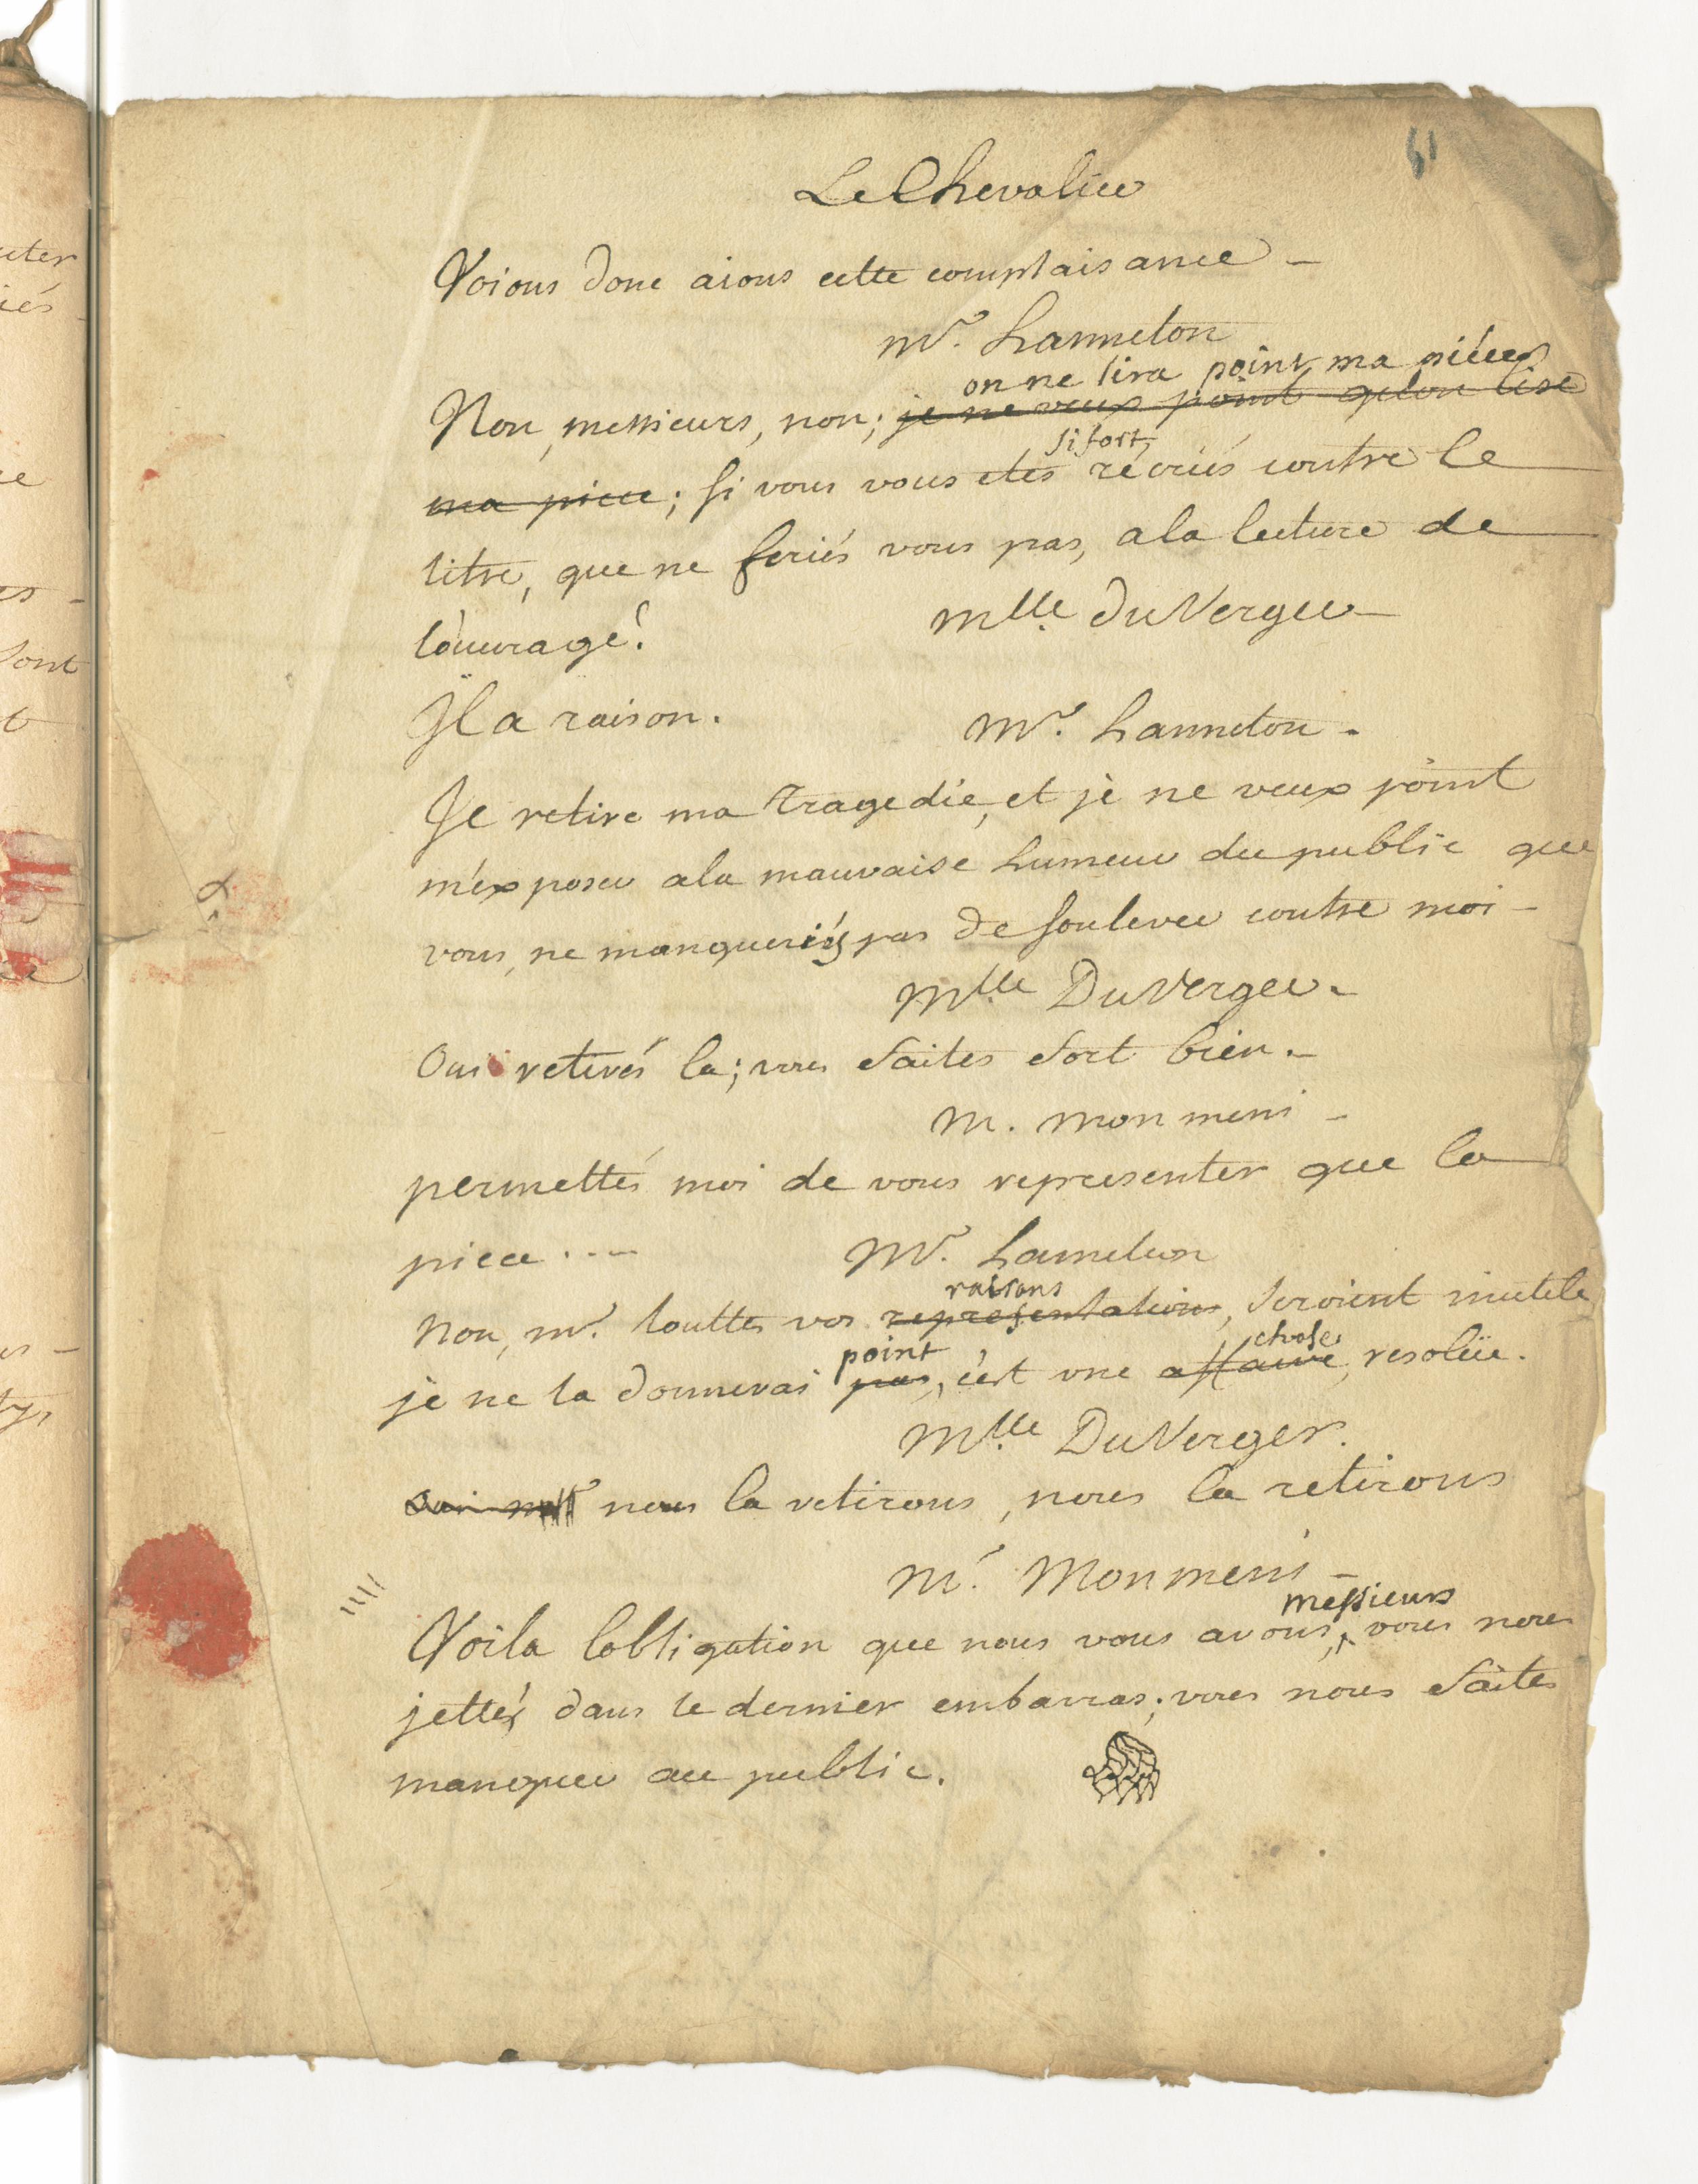 Le Chevalier
Voions donc aions cette complaisance -
mr. hanneton
on ne lira point ma piéce
Non, messieurs, non; je ne veux point qu'on lise
si fort,
ma piece; si vous vous etes récriés contre le
titre, que ne feriés vous pas, a la lecture de
l'ouvrage!
mlle. du Verger
Il a raison.
mr. hanneton -
Je retire ma tragedie, et je ne veux point
m'exposer a la mauvaise humeur du public que
vous ne manqueriés pas de soulever contre moi -
mlle Du Verger -
Oui retirés la; vous faites fort bien. -
m. mon meni -
permettés moi de vous representer que la
piece ....
mr. hanneton
raisons
Non, mr. touttes vos representations, seroient inutile
point chose
je ne la donnerai pas, c'est une affaire, resolüe.
Mlle Du Verger.
oui nous la retirons, nous la retirons
mr. Monmeni -
messieurs
Voila l'obligation que nous vous avons, vous nous
jettés dans le dernier embarras; vous nous faites
manquer au public.